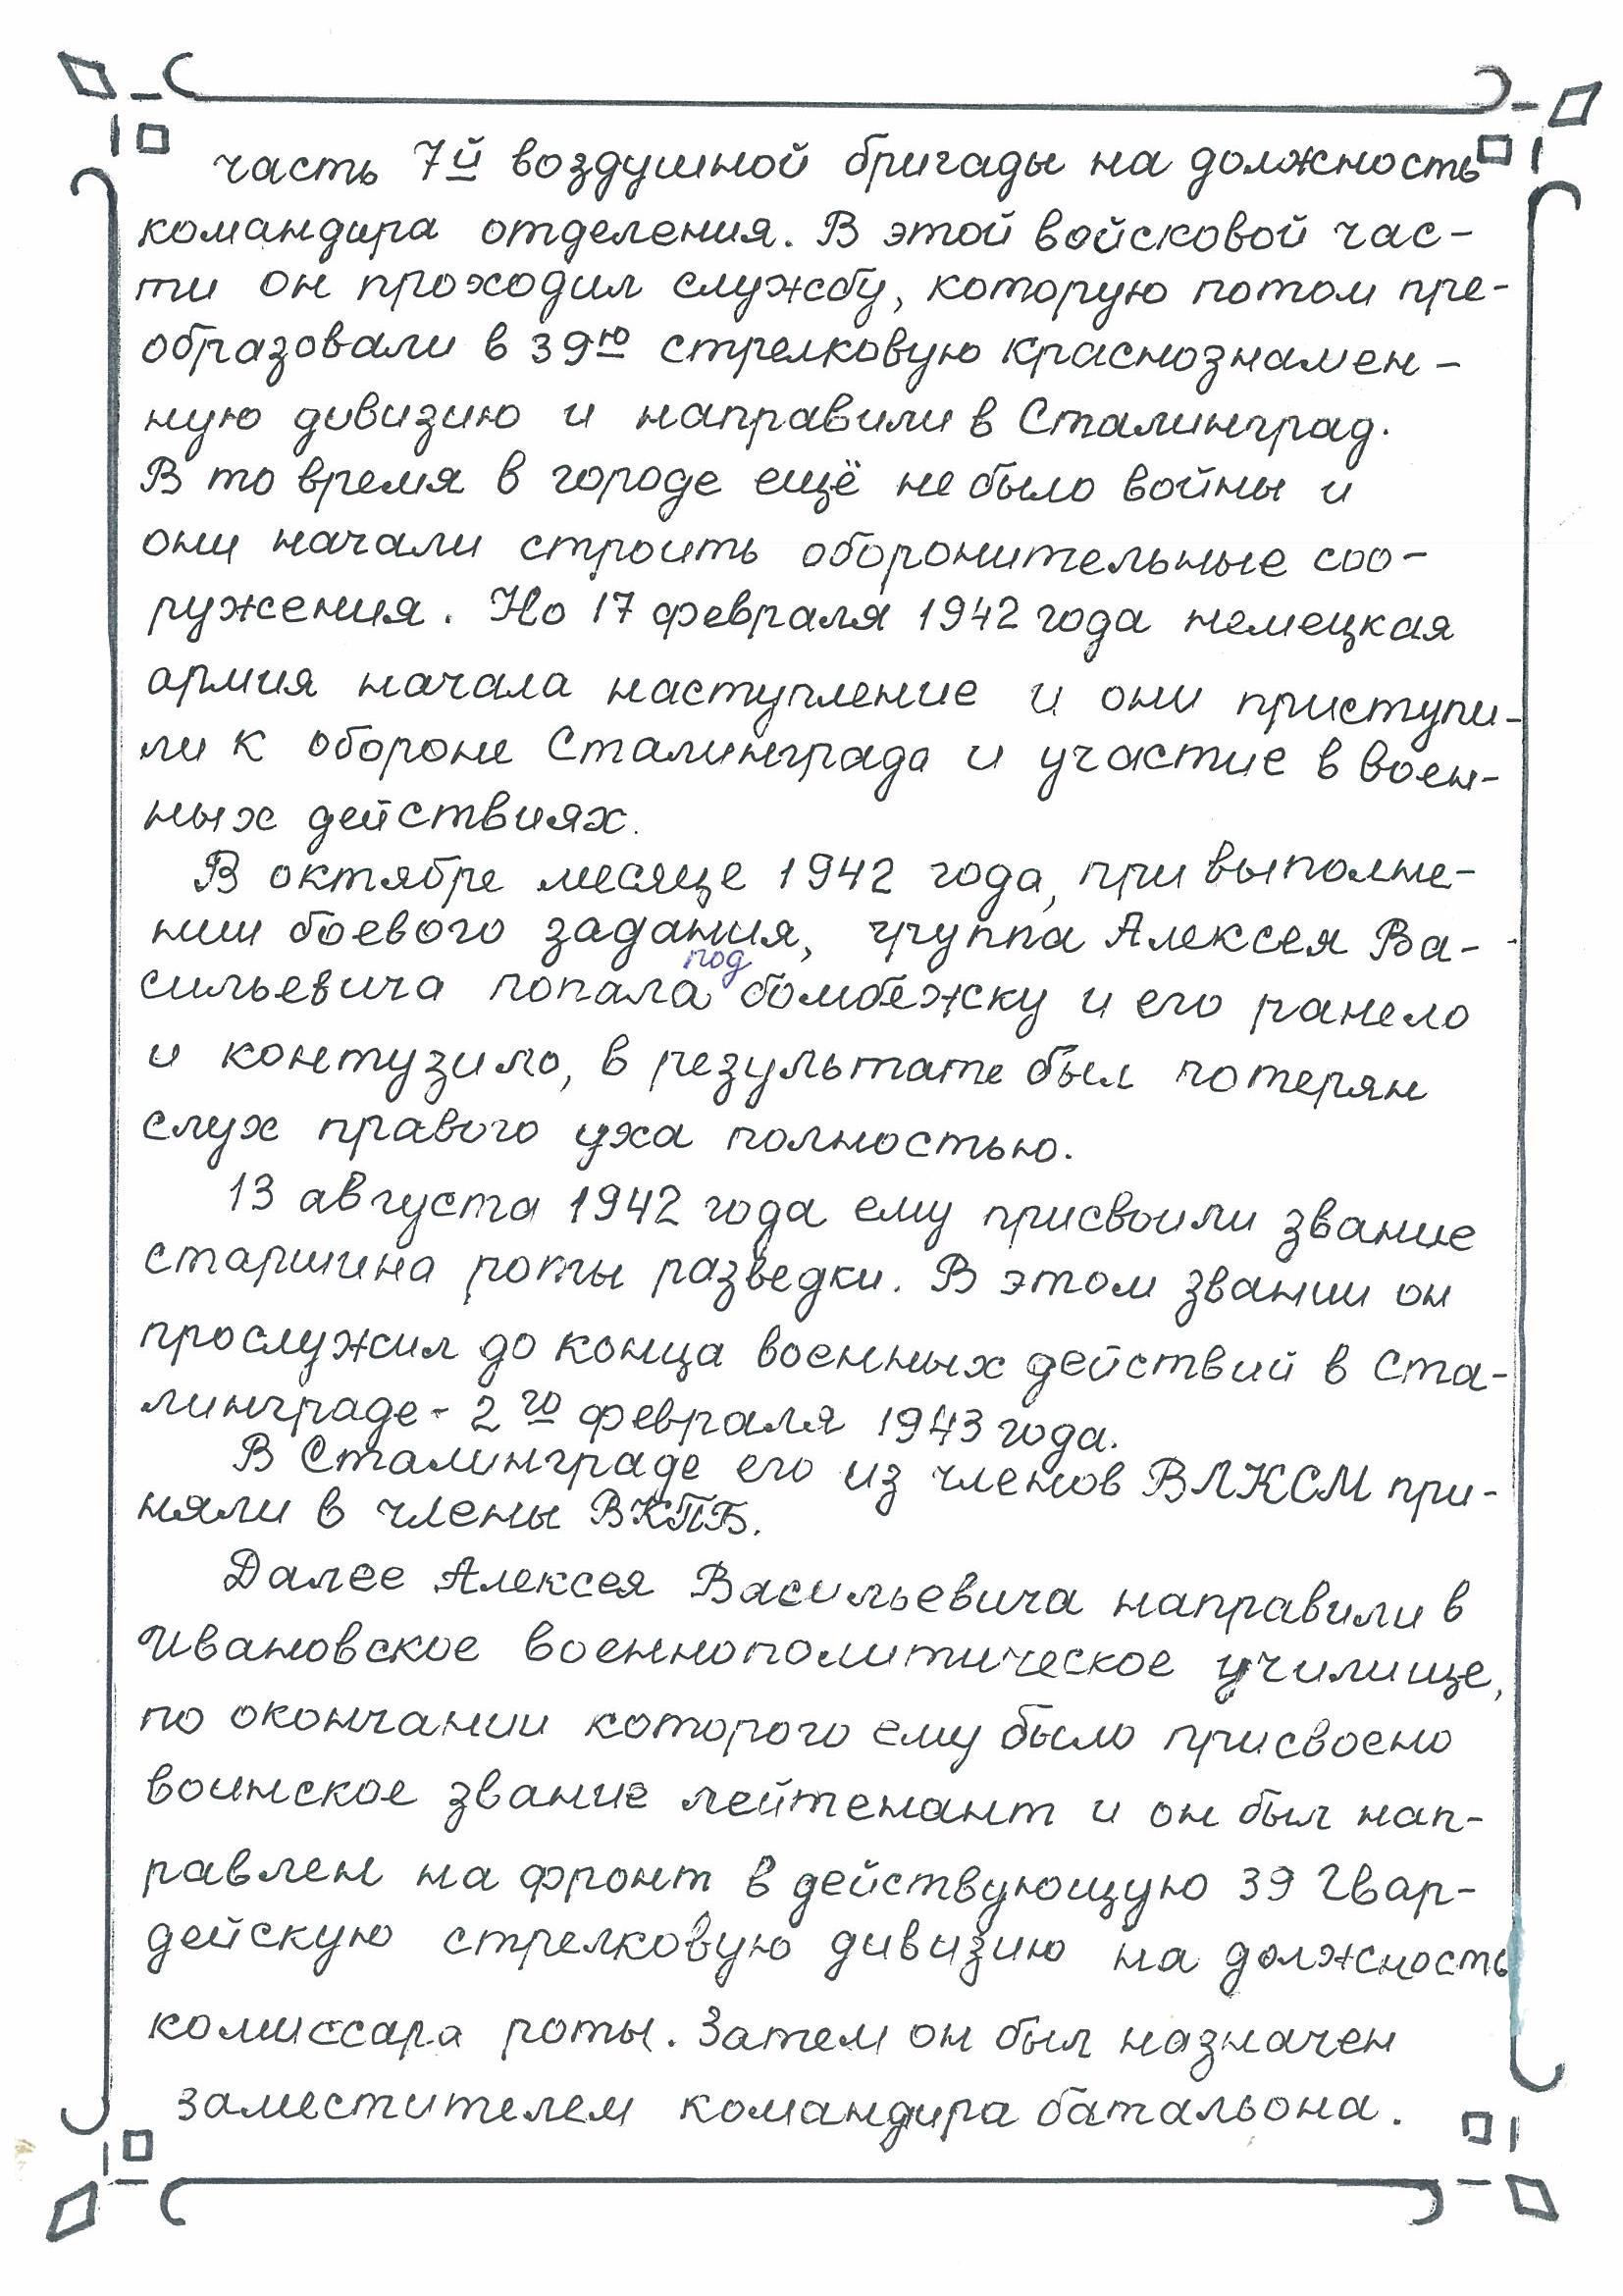 часть 7й воздушной бригады на должность
командира отделения. В этой войсковой час-
ти он проходил службу, которую потом пре-
образовали в 39ю стрелковую краснознамен-
ную дивизию и направили в Сталинград.
В то время в городе ещё не было войны и
они начали строить оборонительные соо-
ружения. Но 17 февраля 1942 года немецкая
армия начала наступление и они приступи-
ли к обороне Сталинграда и участие в воен-
ных действиях.
В октябре месяце 1942 года, при выполне-
нии боевого задания, группа Алексея Ва-
сильевича попала под бомбёжку и его ранело
и контузило, в результате был потерян
слух правого уха полностью.
13 августа 1942 года ему присвоили звание
старшина роты разведки. В этом звании он
прослужил до конца военных действий в Ста-
линграде - 2го февраля 1943 года.
В Сталинграде его из членов ВЛКСМ при-
няли в члены ВКПБ.
Далее Алексея Васильевича направили в
Ивановское военнополитическое училище,
по окончании которого ему было присвоено
воинское звание лейтенант и он был нап-
равлен на фронт в действующую 39 Гвар-
дейскую стрелковую дивизию на должность
комиссара роты. Затем он был назначен
заместителем командира батальона.